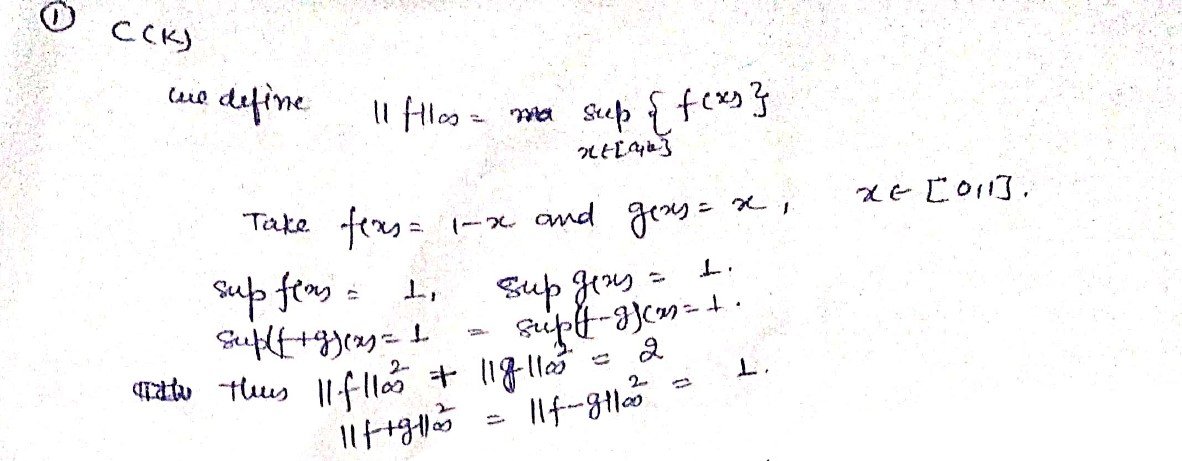 ① C(K)
we define ||f||∞ = sup { f(x) }
x∈[a,b]
Take f(x) = 1-x and g(x) = x, x ∈ [0,1].
sup f(x) = 1, sup g(x) = 1.
sup(f+g)(x) = 1 = sup(f-g)(x) = 1.
Thus ||f||∞² + ||g||∞² = 2
||f+g||∞² = ||f-g||∞² = 1.